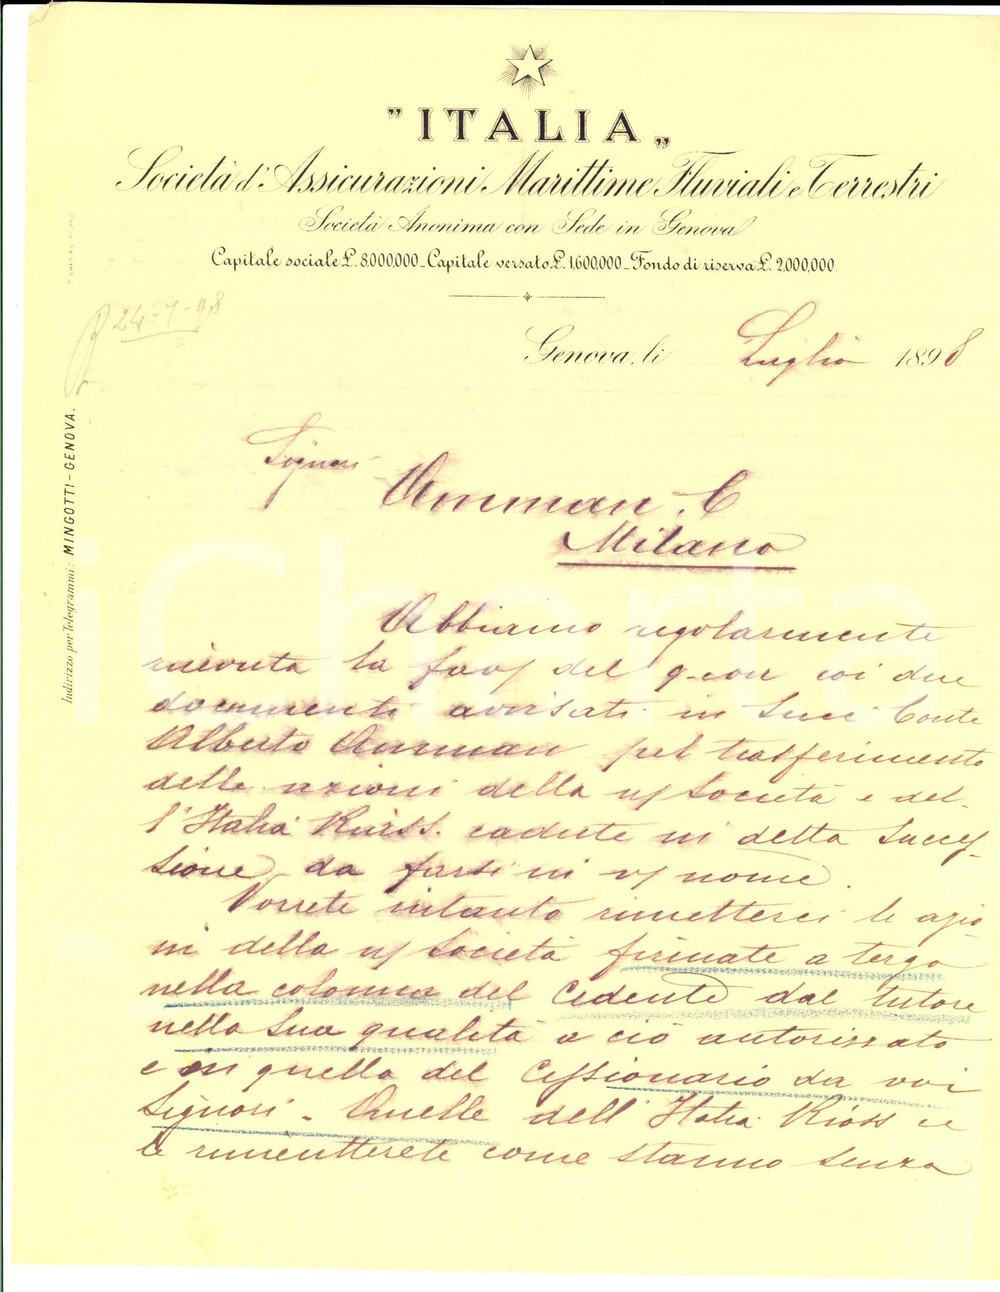 "ITALIA„
Società d'Assicurazioni Marittime Fluviali e Terrestri
Società Anonima con Sede in Genova
Capitale sociale £. 8.000,000_Capitale versato £. 1.600,000_Fondo di riserva £. 2,000,000.
24-7-98
Genova, li Luglio 1898
Signori
Amman. C
Milano
Abbiamo regolarmente
ricevuta la fav/ del coi due
documenti avvisati in Succ. Conte
Alberto Amman pel trasferimento
delle azioni della n/ Società e del-
l'Italia Riass. cadute in detta Succes-
sione, da farsi in v/ nome.
Vorrete intanto rimetterci le azio
ni della n/ Società firmate a tergo
nella colonna del Cedente dal tutore
nella sua qualità a ciò autorizzato
e in quella del Cessionario da voi
Signori - Quelle dell'Italia Riass ce
le rimetterete come stanno senza
Indirizzo per Telegrammi: MINGOTTI-GENOVA.
iCharta